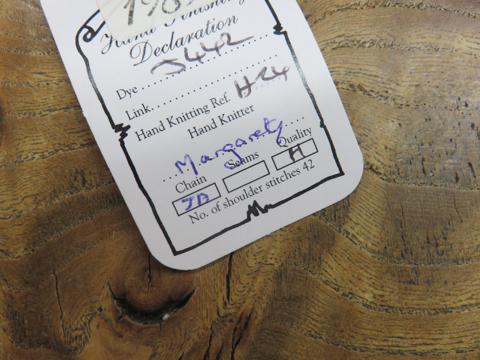 Hand Finishing
Declaration
Dye ............ J442
Link ............
Hand Knitting Ref. H24
Hand Knitter
Margaret
Chain Seams Quality
JB H
No. of shoulder stitches 42